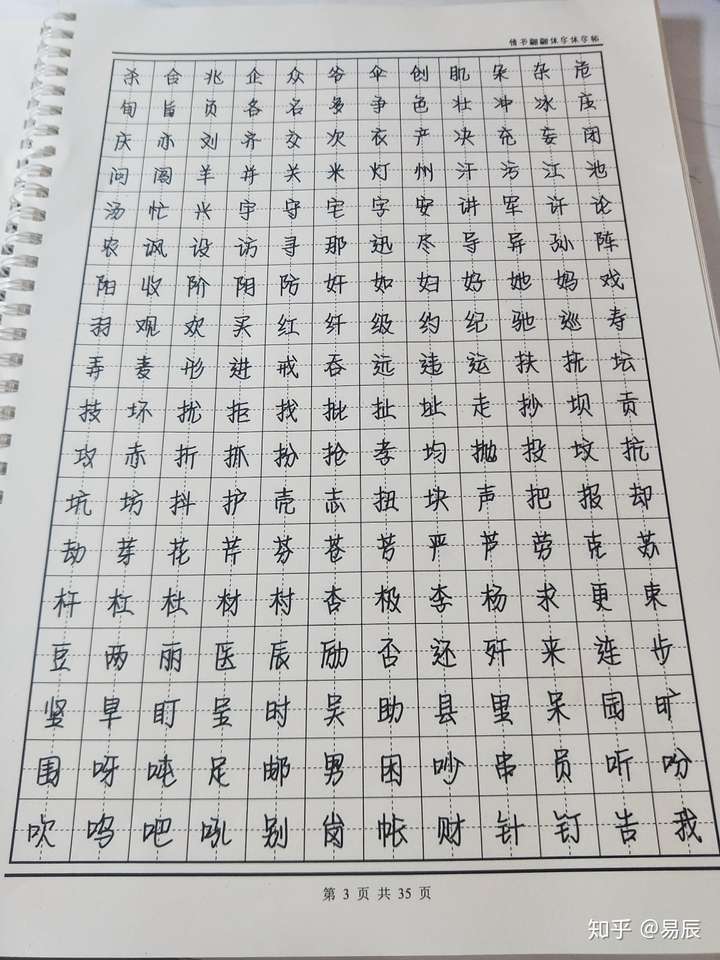 情书翩翩体字体字帖
杀合兆企众爷伞创肌朵杂危
旬旨负各名多争色壮冲冰庄
庆亦刘齐交次衣产决充妄闭
问闯羊并关米灯州汗污江池
汤忙兴宇守宅字安讲军许论
农讽设访寻那迅尽导异孙阵
阳收阶阴防奸如妇好她妈戏
羽观欢买红纤级约纪驰巡寿
弄麦形进戒吞远违运扶抚坛
技坏扰拒找批扯址走抄坝贡
攻赤折抓扮抢孝均抛投坟抗
坑坊抖护壳志扭块声把报却
劫芽花芹芬苍芳严芦劳克苏
杆杠杜材村杏极李杨求更束
豆两丽医辰励否还歼来连步
坚旱盯呈时吴助县里呆园旷
围呀吨足邮男困吵串员听吩
吹呜吧吼别岗帐财针钉告我
第 3 页 共 35 页
知乎 @易辰